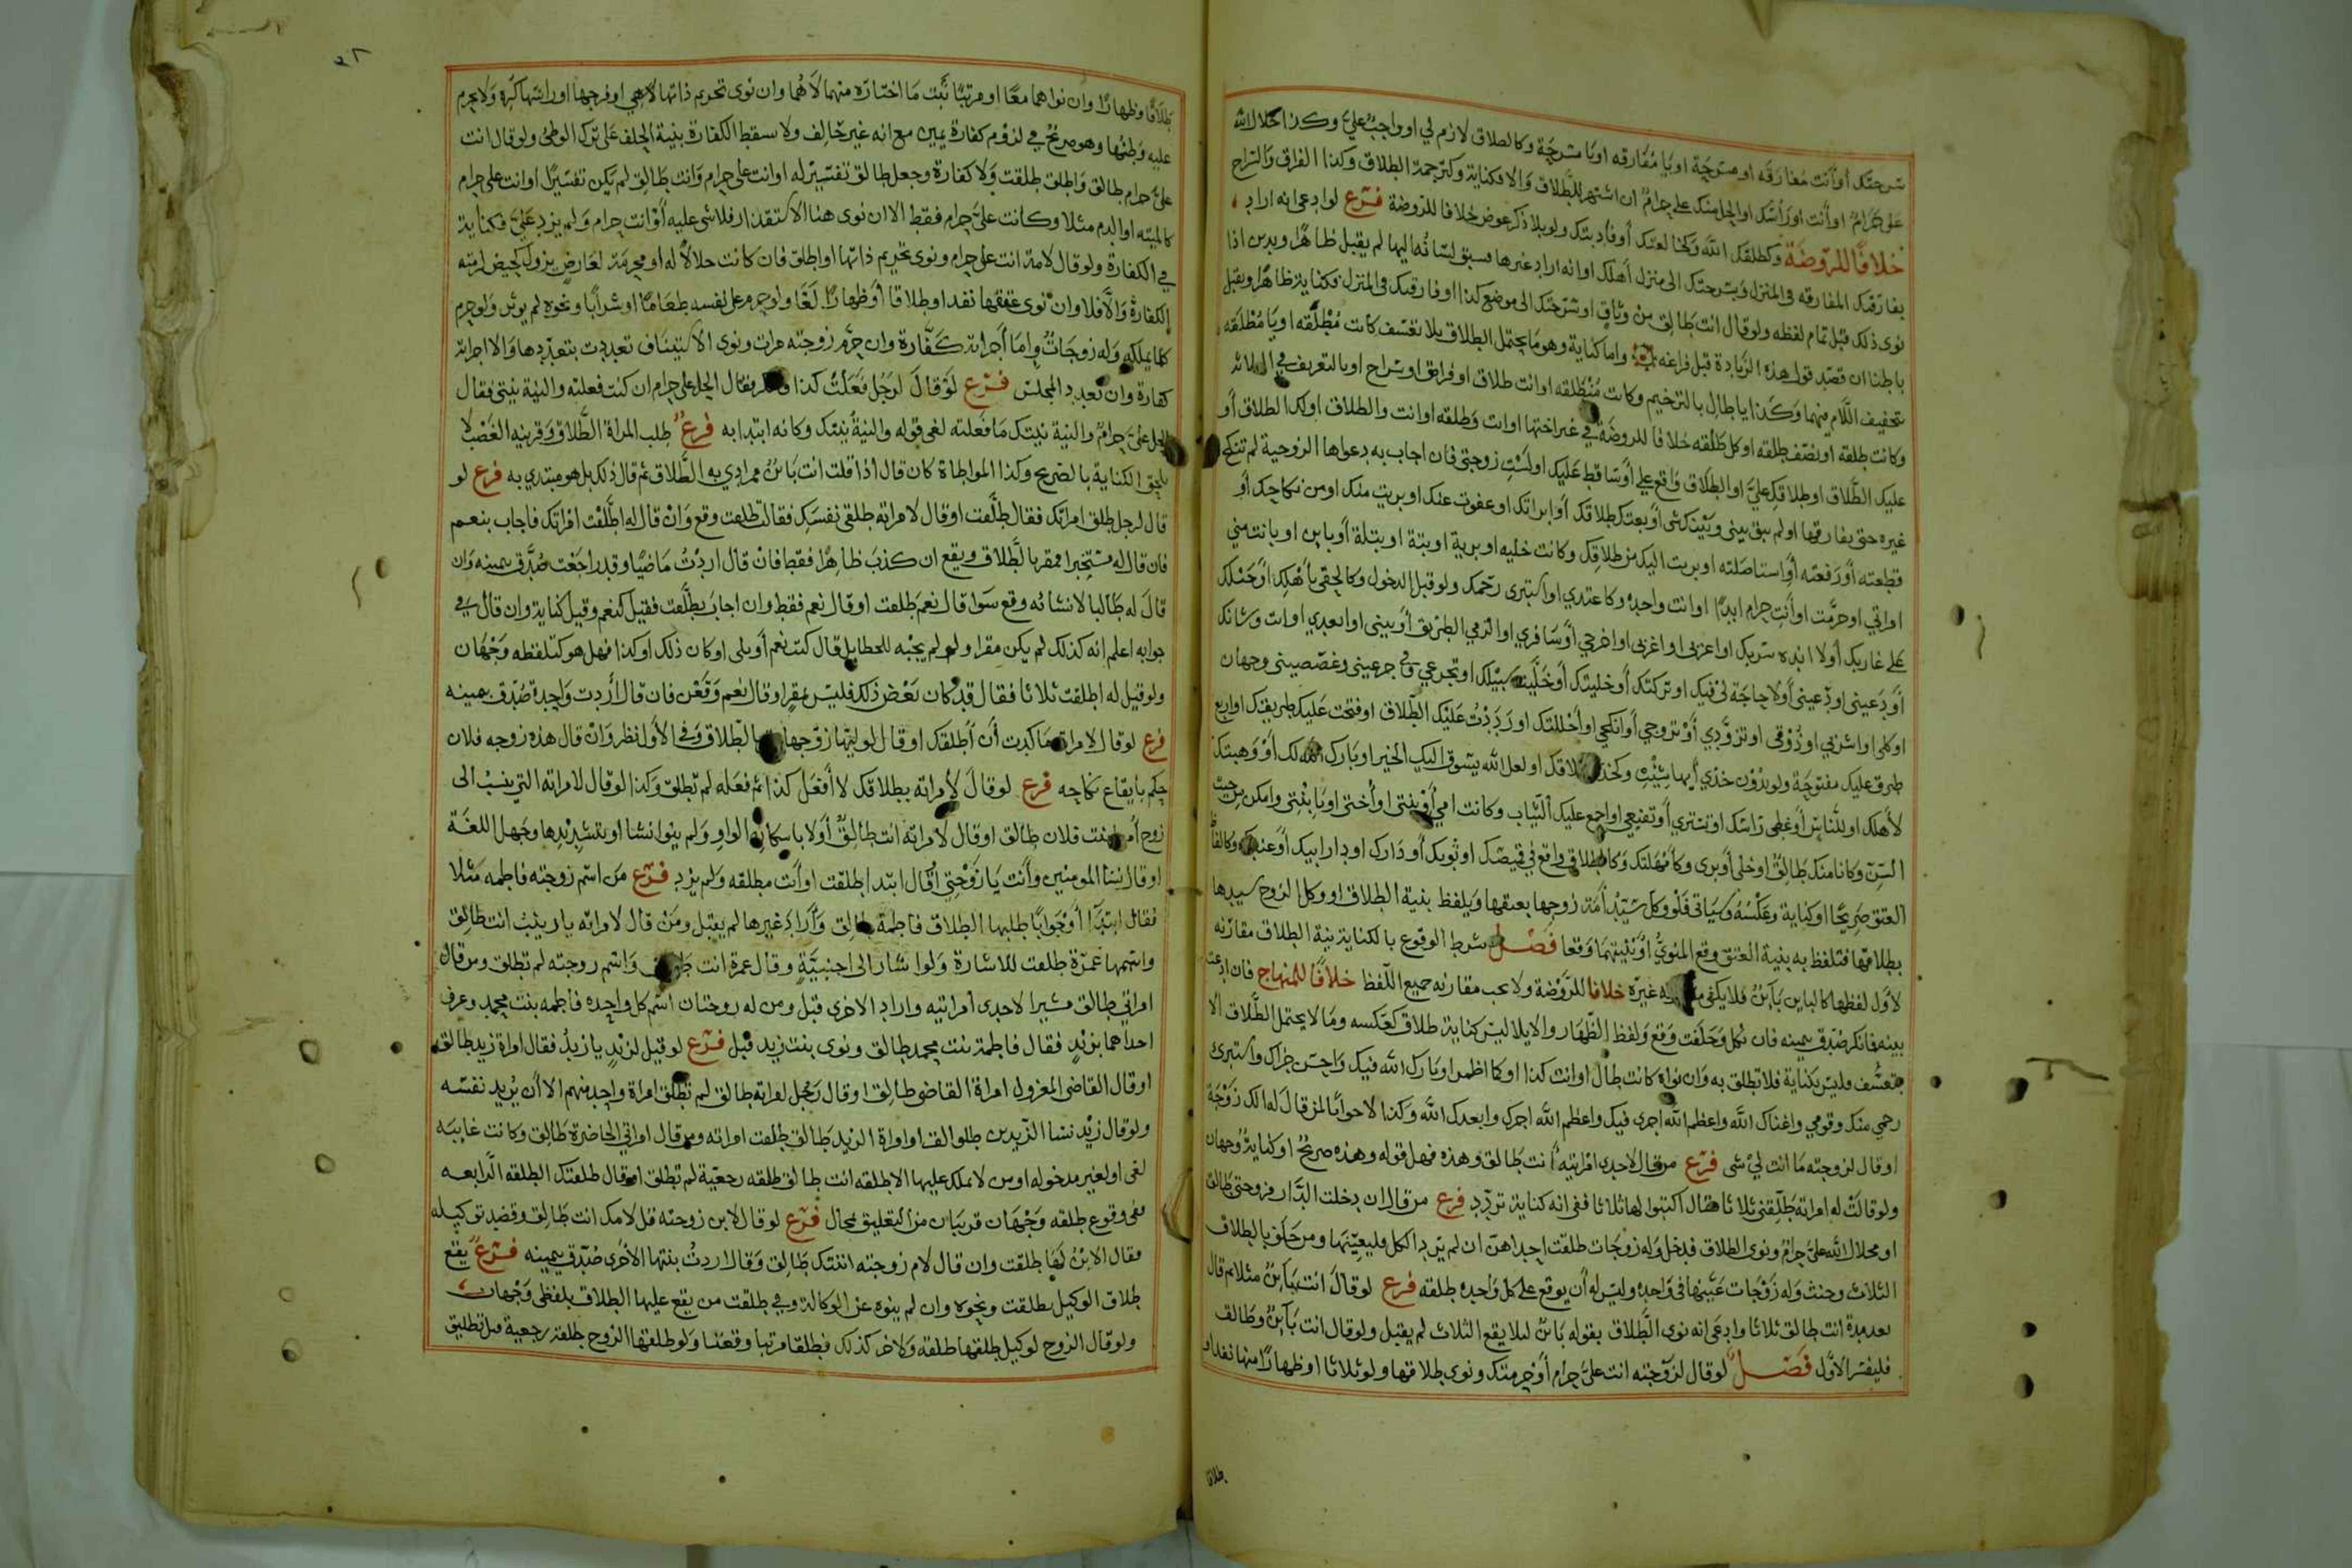 سرحتك أو أنت مفارقه او مسرحة او يا مفارقه او يا مسرحة وكالطلاق لازم لي او واجب علي وكذا حلال الله
علي حرام او أنت او رأسك او الحل منك علي حرام ان اشتهر للطلاق والا فكناية وكترجمة الطلاق وكذا الفراق والسراح
خلافا للروضة وكطلقك الله وكخالعتك أو فاديتك ولو بلا ذكر عوض خلافا للروضة فرع لو ادعى انه اراد
بفارقتك المفارقه في المنزل وبسرحتك الى منزل أهلك او انه اراد غيرها فسبق لسانه اليها لم يقبل ظاهرا ويدين اذا
نوى ذلك قبل تمام لفظه ولو قال انت طالق من وثاق او سرحتك الى موضع كذا او فارقتك في المنزل فكناية ظاهرا ويقبل
باطنا ان قصد قول هذه الزيادة قبل فراغه واما كناية وهو ما يحتمل الطلاق بلا تعسف كانت مطلقه او يا مطلقه
بتخفيف اللام منهما وكذا يا طال بالترخيم وكانت منطلقه او انت طلاق او فراق او سراح او بالتعريف في الثلاثه
وكانت طلقه او نصف طلقه او كل طلقه خلافا للروضة في غير اختها او انت وطلقه او انت والطلاق او لك الطلاق أو
عليك الطلاق او طلاقك علي او الطلاق واقع علي أو ساقط عليك او لست زوجتي فان اجاب به دعواها الزوجية لم تنكح
غيره حتى يفارقها او لم يبق بيني وبينك شي أو بعتك طلاقك أو ابراتك او عفوت عنك او بريت منك او من نكاحك أو
قطعته أو رفعته أو استاصلته او بريت اليك من طلاقك وكانت خليه او برية او بتة او بتلة أو باين او بانت مني
امراتي او حرمت او أنت حرام ابدا او انت واحدة وكاعتدي او استبرى رحمك ولو قبل الدخول وكالحقي بأهلك أو حبلك
على غاربك أولا انده سربك او اعزبي او اغربي او اخرجي أو سافري او الزمي الطريق أو بيني او ابعدي او انت وشانك
أو دعيني او ودعيني أولا حاجة لي فيك او تركتك أو خليتك أو خليت سبيلك او تجرعي وفي جرعيني وغصصيني وجهان
او كلي او اشربي او ذوقي او تزودي أو تزوجي أو انكحي او أحللتك او رددت عليك الطلاق او فتحت عليك طريقك او اربع
طرق عليك مفتوحة ولو بدون خذي أيها شئت وكخذي طلاقك او لعل الله يسوق اليك الخير او بارك الله لك أو وهبتك
لأهلك او للناس أو غطي راسك او تستري أو تقنعي او اجمع عليك الثياب وكانت امي أو بنتي او أختي او يا بنتي وامكن من حيث
السن وكانا منك طالق او خلي أو بري وكأمهلتك وكالطلاق واقع في قميصك او ثوبك أو دارك او دار ابيك أو عنبك
العتق صريحا او كناية وعكسه وسياتي فلو وكل سيد أمة زوجها بعتقها ويلفظ بنية الطلاق او وكل الزوج سيدها
بطلاقها فتلفظ به بنية العتق وقع المنوي أو نيتهما وقعا فصل شرط الوقوع بالكناية نية الطلاق مقارنه
لأول لفظها كالباين بائن فلا يكفي غيره خلافا للروضة ولا يجب مقارنه جميع اللفظ خلافا للمنهاج فان ادعت
بينه فانكر صدق بيمينه فان نكل وحلفت وقع ولفظ الظهار والايلا ليس كناية طلاق كعكسه وما لا يحتمل الطلاق الا
بتعسف فليس بكناية فلا تطلق به وان نواه كانت طال او انت كذا او كما اظمر او بارك الله فيك واحسن جزاك واستبرئ
رحمي منك وقومي واغناك الله واعظم الله اجري فيك واعظم الله اجرك وابعدك الله وكذا لا جوابا لمن قال له الك زوجة
او قال لزوجته ما انت لي شى فرع من قال لاحدى امراتيه أنت طالق وهذه فهل قوله وهذه صريح او كناية وجهان
ولو قالت له امراته طلقني ثلاثا فقال اكتبوا لها ثلاثا ففي انه كناية تردد فرع من قال ان دخلت الدار فزوجتي طالق
او محلال الله علي حرام ونوى الطلاق فدخل وله زوجات طلقت احداهن ان لم يرد الكل وليعينها ومن حلف بالطلاق
الثلاث وحنث وله زوجات عينها في واحدة وليس له أن يوقع على كل واحده طلقه فرع لو قال انت بائن مثلا ثم قال
بعد مدة انت طالق ثلاثا وادعى انه نوى الطلاق بقوله بائن لبلا يقع الثلاث لم يقبل ولو قال انت بائن وطالق
فليفسر الأول فصل لو قال لزوجته انت علي حرام أو حرمتك ونوى طلاقها ولو ثلاثا او ظهارا منها نفذ او
طلاقا
طلاقا وظهارا وان نواهما معا او مرتبا ثبت ما اختاره منهما لا هما وان نوى تحريم ذاتها لا هي او فرجها او راسها كره ولا يحرم
عليه وطئها وهو صريح في لزوم كفارة يمين مع انه غير حالف ولا تسقط الكفارة بنية الحلف على ترك الوطئ ولو قال انت
علي حرام طالق واطلق طلقت ولا كفارة وجعل طالق تفسير له او انت علي حرام وانت طالق لم يكن تفسيرا او انت علي حرام
كالميته او الدم مثلا وكانت علي حرام فقط الا ان نوى هنا الاستقذار فلا شى عليه أو انت حرام ولم يزد علي فكناية
في الكفارة ولو قال لامته انت علي حرام ونوى تحريم ذاتها او اطلق فان كانت حلالا له او محرمة لعارض يزول كحيض لزمته
الكفارة والا فلا وان نوى عتقها نفذ او طلاقا أو ظهارا لغا ولو حرم على نفسه طعاما او شرابا ونحوه لم يوثر ولو حرم
كلما يملكه وله زوجات واما أجراته كفارة وان حرم زوجته مرات ونوى الاستيناف تعددت بتعددها والا اجراته
كفارة وان تعدد المجلس فرع لو قال لرجل فعلت كذا فانكر فقال الحل علي حرام ان كنت فعلته والنية نيتي فقال
الحل علي حرام والنية نيتك ما فعلته لغى قوله والنية نيتك وكانه ابتدا به فرع طلب المراة الطلاق وقرينة الغضب لا
يلحق الكناية بالصريح وكذا المواطاة كان قال اذا قلت انت بائن مرادي به الطلاق ثم قال ذلك بل هو مبتدي به فرع لو
قال لرجل طلق امراتك فقال طلقت او قال لامراته طلقي نفسك فقالت طلقت وقع وان قال له اطلقت امراتك فاجاب بنعم
فان قال له مستخبرا فمقر بالطلاق ويقع ان كذب ظاهرا فقط فان قال اردت ماضيا وقد راجعت صدق بيمينه وان
قال له طالبا لانشائه وقع سوا قال نعم طلقت او قال نعم فقط وان اجاب بطلقت فقيل كنعم وقيل كناية وان قال في
جوابه اعلم انه كذلك لم يكن مقرا ولو لم يجبه للخطا بل قال كنت نعم أو بلى او كان ذلك او كذا فهل هو كتلفظه وجهان
ولو قيل له اطلقت ثلاثا فقال قد كان بعض ذلك فليس بمقر او قال نعم وقعن فان قال أردت واحدة صدق بيمينه
فرع لو قال لامراته ما كدت أن أطلقك او قال لوليها زوجها بالطلاق وفي الأول نظر وان قال هذه زوجه فلان
حكم بايقاع نكاحه فرع لو قال لامراته بطلاقك لا أفعل كذا ثم فعله لم تطلق وكذا لو قال لامراته التي ينسب الى
زوج أمها بنت فلان طالق او قال لامراته انت طالق أولا باسكان الواو ولم ينو انشا او بتشديدها وجهل اللغة
او قال نسا المومنين وأنت يا زوجتي او قال ابتدا طلقت او أنت مطلقه ولم يزد فرع من اسم زوجته فاطمه مثلا
فقال ابتدا أو جوابا طلبها الطلاق فاطمة طالق وأراد غيرها لم يقبل ومن قال لامراته يا زينب انت طالق
واسمها عمرة طلقت للاشارة ولو اشار الى اجنبية وقال عمرة انت طالق واسم زوجته لم تطلق ومن قال
امراتي طالق مشيرا لاحدى امراتيه واراد الاخرى قبل ومن له زوجتان اسم كل واحده فاطمه بنت محمد وعرف
احداهما بزيد فقال فاطمة بنت محمد طالق ونوى بنت زيد قبل فرع لو قيل لزيد يا زيد فقال امراة زيد طالق
او قال القاضي المعزول امراة القاضي طالق او قال رجل لمراته طالق لم تطلق امراة واحد منهم الا أن يريد نفسه
ولو قال زيد نسا الزيدين طوالق او امراة الزيد طالق طلقت امراته ومن قال امراتي الحاضرة طالق وكانت غايبه
لغى او لغير مدخوله او من لا يملك عليها الا طلقه انت طالق طلقه رجعية لم تطلق او قال طلقتك الطلقه الرابعه
ففي وقوع طلقه وجهان قريبان من التعليق بمحال فرع لو قال لابن زوجته قل لامك انت طالق وقصد توكيله
فقال الابن لها طلقت وان قال لام زوجته ابنتك طالق وقال اردت بنتها الأخرى صدق بيمينه فرع يقع
طلاق الوكيل بطلقت ونحوه وان لم ينوه عن الوكالة وفي طلقت من يقع عليها الطلاق بلفظي وجهان
ولو قال الزوج لوكيل طلقها طلقه ولآخر كذلك فطلقا مرتبا وقعتا ولو طلقها الزوج طلقة رجعية قبل تطليق